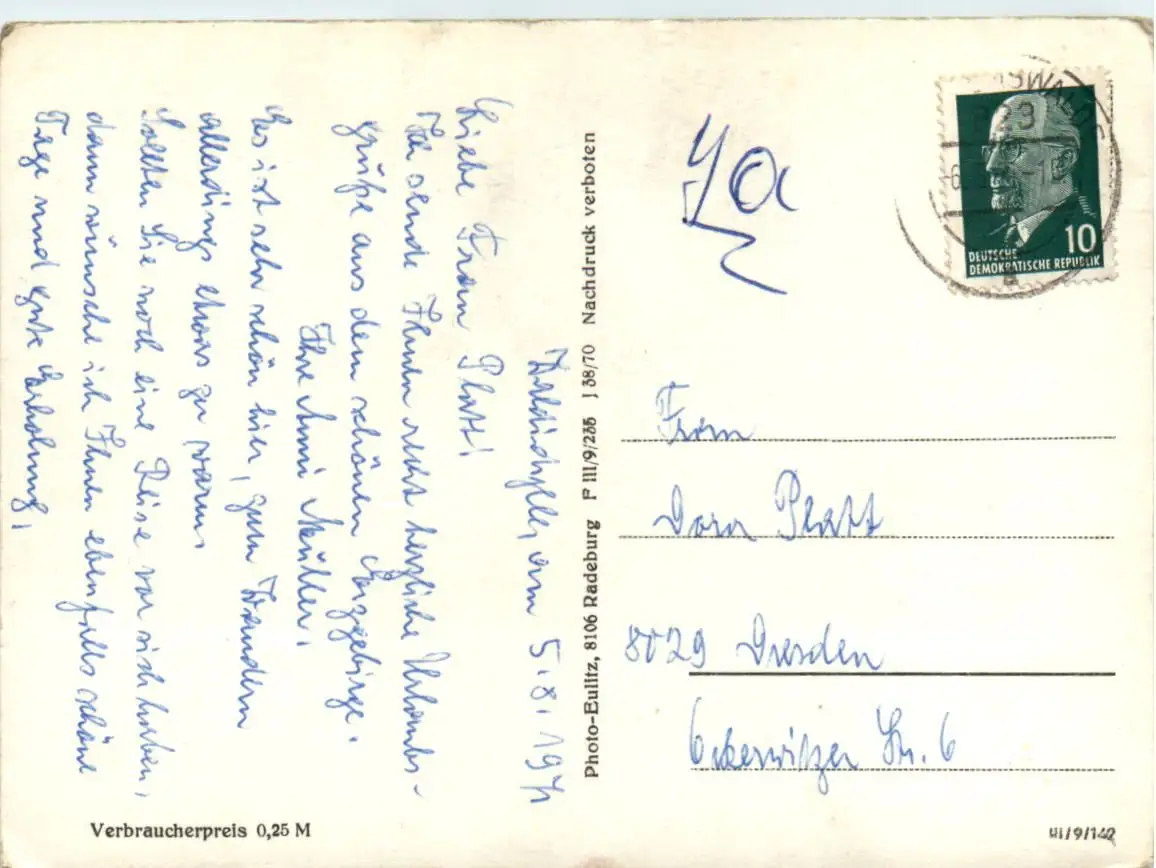 Waldidylle, am 5.8.1971
Liebe Frau Platt!
Ich sende Ihnen recht herzliche Urlaubs-
grüße aus dem schönen Erzgebirge.
Ihre Anni Müller.
Es ist sehr schön hier, zum Wandern
allerdings etwas zu warm.
Sollten Sie noch eine Reise vor sich haben,
dann wünsche ich Ihnen ebenfalls schöne
Tage und gute Erholung.
Photo-Eulitz, 8106 Radeburg F III/9/235 J 38/70 Nachdruck verboten
DEUTSCHE
DEMOKRATISCHE REPUBLIK
10
Frau
Dora Platt
8029 Dresden
Ockerwitzer Str. 6
Verbraucherpreis 0,25 M
III/9/142